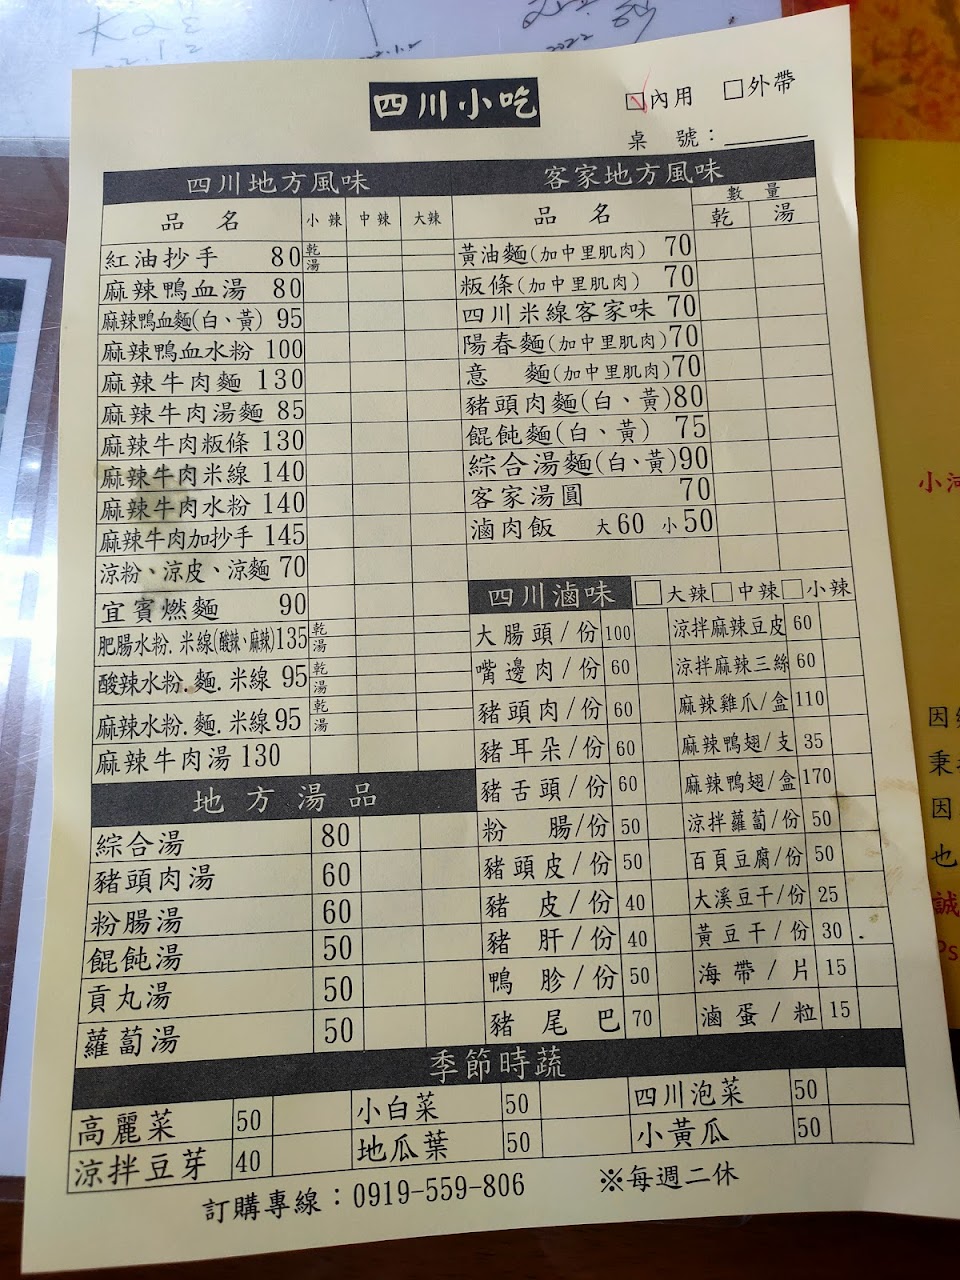 四川小吃
內用 外帶
桌 號：
四川地方風味
品 名 小辣 中辣 大辣
紅油抄手 80 乾 湯
麻辣鴨血湯 80
麻辣鴨血麵(白、黃) 95
麻辣鴨血水粉 100
麻辣牛肉麵 130
麻辣牛肉湯麵 85
麻辣牛肉粄條 130
麻辣牛肉米線 140
麻辣牛肉水粉 140
麻辣牛肉加抄手 145
涼粉、涼皮、涼麵 70
宜賓燃麵 90
肥腸水粉.米線(酸辣、麻辣)135 乾 湯
酸辣水粉.麵.米線 95 乾 湯
麻辣水粉.麵.米線 95 乾 湯
麻辣牛肉湯 130
客家地方風味
品 名 數量 乾 湯
黃油麵(加中里肌肉) 70
粄條(加中里肌肉) 70
四川米線客家味 70
陽春麵(加中里肌肉) 70
意 麵(加中里肌肉) 70
豬頭肉麵(白、黃) 80
餛飩麵(白、黃) 75
綜合湯麵(白、黃) 90
客家湯圓 70
滷肉飯 大60 小50
地方湯品
綜合湯 80
豬頭肉湯 60
粉腸湯 60
餛飩湯 50
貢丸湯 50
蘿蔔湯 50
四川滷味 大辣 中辣 小辣
大腸頭/份 100 涼拌麻辣豆皮 60
嘴邊肉/份 60 涼拌麻辣三絲 60
豬頭肉/份 60 麻辣雞爪/盒 110
豬耳朵/份 60 麻辣鴨翅/支 35
豬舌頭/份 60 麻辣鴨翅/盒 170
粉 腸/份 50 涼拌蘿蔔/份 50
豬頭皮/份 50 百頁豆腐/份 50
豬 皮/份 40 大溪豆干/份 25
豬 肝/份 40 黃豆干/份 30
鴨 胗/份 50 海帶/片 15
豬尾巴 70 滷蛋/粒 15
季節時蔬
高麗菜 50 小白菜 50 四川泡菜 50
涼拌豆芽 40 地瓜葉 50 小黃瓜 50
訂購專線：0919-559-806 ※每週二休
小河
因
秉
因
也
誠
Ps